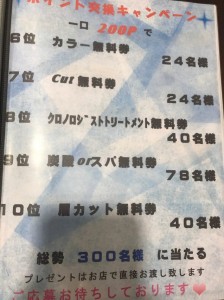 ポイント交換キャンペーン
一口 200Pで
6位 カラー無料券
24名様
7位 Cut無料券
24名様
8位 クロノロジーストリートメント無料券
40名様
9位 炭酸orスパ無料券
78名様
10位 眉カット無料券
40名様
総勢 300名様 に当たる
プレゼントはお店で直接お渡し致します
ご応募お待ちしております♥